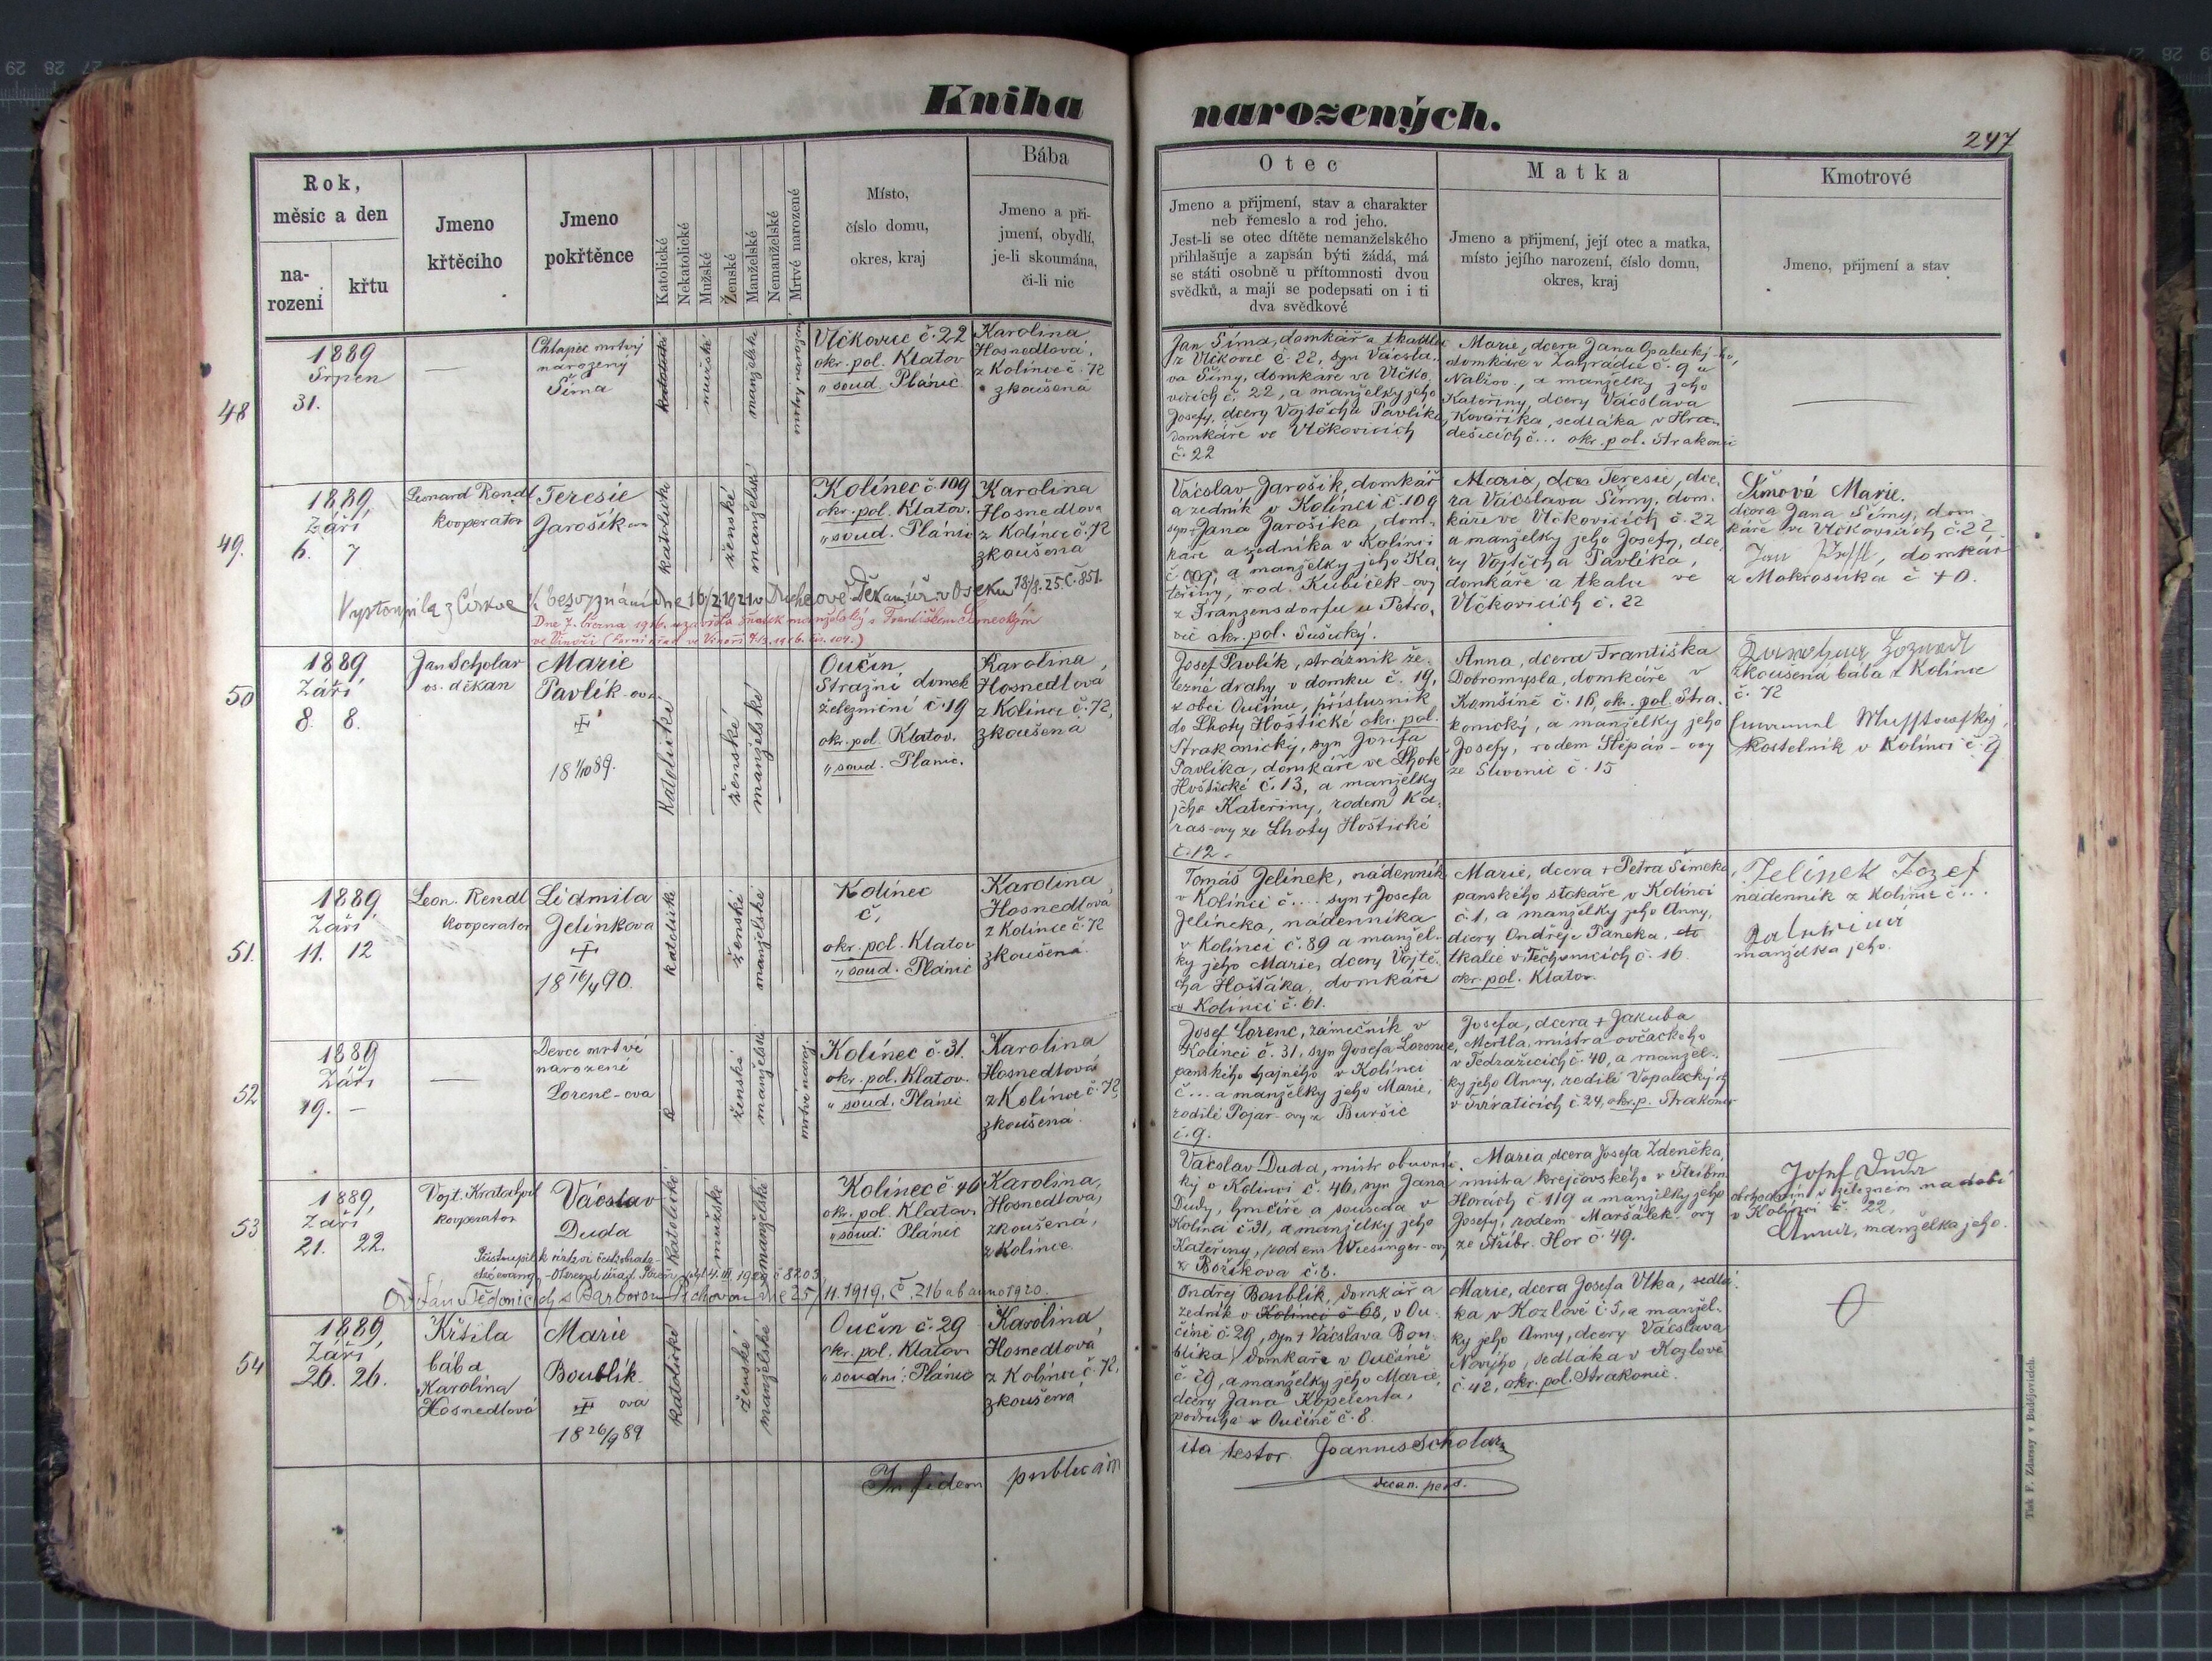 Kniha narozených.
247
Rok,
měsíc a den
na-
rozeni
křtu
Jmeno
křtěcího
Jmeno
pokřtěnce
Katolické
Nekatolické
Mužské
Ženské
Manželské
Nemanželské
Mrtvé narozené
Místo,
číslo domu,
okres, kraj
Bába
Jmeno a při-
jmení, obydlí,
je-li skoumána,
či-li nic
Otec
Jmeno a přijmení, stav a charakter
neb řemeslo a rod jeho.
Jest-li se otec dítěte nemanželského
přihlašuje a zapsán býti žádá, má
se státi osobně u přítomnosti dvou
svědků, a mají se podepsati on i ti
dva svědkové
Matka
Jmeno a přijmení, její otec a matka,
místo jejího narození, číslo domu,
okres, kraj
Kmotrové
Jmeno, přijmení a stav
48
1889
Srpen
31.
Chlapec mrtvý
narozený
Šíma
katolické
mužské
manželské
mrtvý narozený
Vlčkovice č. 22
okr. pol. Klatov
" soud. Plánic
Karolina
Hosnedlová,
z Kolince č. 72
zkoušená
Jan Šíma, domkář a tkadlec
z Vlčkovic č. 22, syn Václa-
va Šímy, domkáře ve Vlčko
vicích č. 22, a manželky jeho
Josefy, dcery Vojtěcha Pavlíka
domkáře ve Vlčkovicích
č. 22
Marie, dcera Jana Opalecký-ho,
domkáře v Zahrádce č. 9 u
Nalžov, a manželky jeho
Kateřiny, dcery Václava
Kováříka, sedláka v Hra-
dešicích č... okr. pol. Strakonic
49.
1889,
Září
6. 7
Leonard Rendl
kooperator
Teresie
Jarošík-ova
katolické
ženské
manželské
Kolínec č. 109
okr. pol. Klatov.
" soud. Plánic
Karolina
Hosnedlova
z Kolince č. 72
zkoušená
Václav Jarošík, domkář
a zedník v Kolinci č. 109
syn Jana Jarošíka, dom-
káře a zedníka v Kolinci
č. 109, a manželky jeho Ka-
teřiny, rod. Kubíček-ovy
z Franzensdorfu u Petro-
vic okr. pol. Sušický.
Marie, dcera Teresie, dce-
ra Václava Šímy, dom-
káře ve Vlčkovicích č. 22
a manželky jeho Josefy, dce-
ry Vojtěcha Pavlíka,
domkáře a tkalce ve
Vlčkovicích č. 22
Šimová Marie.
dcera Jana Šímy, dom-
káře ve Vlčkovicích č. 22,
Jan domkář
z Mokrosuka č 40.
Vystoupila z Církve k bezvyznání dne 16/2 1921 v Duchcově Děkan. úř. v Oseku 18/8. 25. č. 851.
Dne 7. března 1916. uzavřela sňatek manželský s Františkem
ve Vinoři (Farní úřad ve Vinoři 7.13.1916. čís. 104.)
50
1889
Září
8. 8.
Jan Scholar
os. děkan
Marie
Pavlík-ova
+
18 1/10 89.
katolické
ženské
manželské
Oučín
Stražní domek
železniční č. 19
okr. pol. Klatov.
" soud. Plánic.
Karolina,
Hosnedlova
z Kolince č. 72,
zkoušená
Josef Pavlík, strážník že-
lezné dráhy v domku č. 19,
v obci Oučínu, příslušník
do Lhoty Hoštické okr. pol.
Strakonický, syn Josefa
Pavlíka, domkáře ve Lhotě
Hoštické č. 13, a manželky
jeho Kateřiny, rodem Ka-
ras-ovy ze Lhoty Hoštické
č. 12.
Anna, dcera Františka
Dobromysla, domkáře v
Komšíně č. 16, okr. pol. Stra-
konický, a manželky jeho
Josefy, rodem Štěpán-ovy
ze Slivonic č. 15
zkoušená bába z Kolince
č. 72
kostelník v Kolinci č. 9
51.
1889
Září
11. 12
Leon. Rendl
kooperator
Lidmila
Jelínkova
+
18 16/4 90.
katolické
ženské
manželské
Kolinec
č.
okr. pol. Klatov
" soud. Plánic
Karolina
Hosnedlova
z Kolince č. 72
zkoušená.
Tomáš Jelínek, nádenník
v Kolinci č.... syn + Josefa
Jelínka, nádenníka
v Kolinci č. 89 a manžel-
ky jeho Marie, dcery Vojtě-
cha Hošťáka, domkáře
v Kolinci č. 61.
Marie, dcera + Petra Šimeka
panského slokaře v Kolinci
č. 1, a manželky jeho Anny,
dcery Ondřeje Paneka,
tkalce v Těchonicích č. 16.
okr. pol. Klatov.
Jelínek Jozef
nádenník z Kolince č...
manželka jeho.
52
1889
Září
19. –
Děvče mrtvě
narozené
Lorenc-ova
ženské
manželské
mrtvě naroz.
Kolínec č. 31.
okr. pol. Klatov.
" soud. Plánic
Karolina
Hosnedlová
z Kolince č. 72,
zkoušená.
Josef Lorenc, zámečník v
Kolinci č. 31, syn Josefa Lorence,
panského hajného v Kolinci
č... a manželky jeho Marie,
rodilé Pojar-ovy z Buršic
č. 9.
Josefa, dcera + Jakuba
Mertla, mistra ovčáckeho
v Tedražicích č. 40, a manžel-
ky jeho Anny, rodilé Vopalecký
v Svératicích č. 24, okr. p. Strakonic
53
1889,
Září
21. 22.
Vojt. Kratochvíl
kooperator
Václav
Duda
katolické
mužské
manželské
Kolínec č 46
okr. pol. Klatov.
" soud: Plánic
Karolina,
Hosnedlova,
zkoušená,
z Kolince.
Václav Duda, mistr obuvnic-
ký v Kolinci č. 46, syn Jana
Dudy, hrnčíře a souseda v
Kolinci č 31, a manželky jeho
Kateřiny, rodem Wiesinger-ovy
z Božíkova č. 8.
Maria, dcera Josefa Zdeněka,
mistra krejčovského v Stříbrn.
Horách č 119 a manželky jeho
Josefy, rodem Maršálek-ovy
ze Stříbr. Hor č. 49.
Josef Duda
obchodník v železném nadobí
v Kolinci č. 22,
Anna, manželka jeho.
Přistoupil k církvi českobratr-
ské evang. 4. III 1922 č 8203
Oddán v Těchonicích s Barborou Píchovou dne 25/11. 1919, č. 216 ab anno 1920.
54
1889,
Září,
26. 26.
Křtila
bába
Karolina
Hosnedlová
Marie
Boublík
ova
+
18 26/9 89
katolické
ženské
manželské
Oučín č. 29
okr. pol. Klatov
" soudní: Plánic
Karolina
Hosnedlová
z Kolince č. 72,
zkoušená
Ondřej Boublík, domkář a
zedník v Kolinci č 68, v Ou-
číně č. 29, syn + Václava Bou-
blíka, domkáře v Oučíně
č. 29, a manželky jeho Marie,
dcery Jana Kopelenta,
podruha v Oučíně č. 8.
Marie, dcera Josefa Vlka, sedlá-
ka, v Kozlově č. 5, a manžel-
ky jeho Anny, dcery Václava
Nového, sedláka v Kozlově
č. 42, okr. pol. Strakonic.
In fidem publicam
ita testor Joannes Scholar
decan. pers.
Tisk F. Zdarssy v Budějovicích.